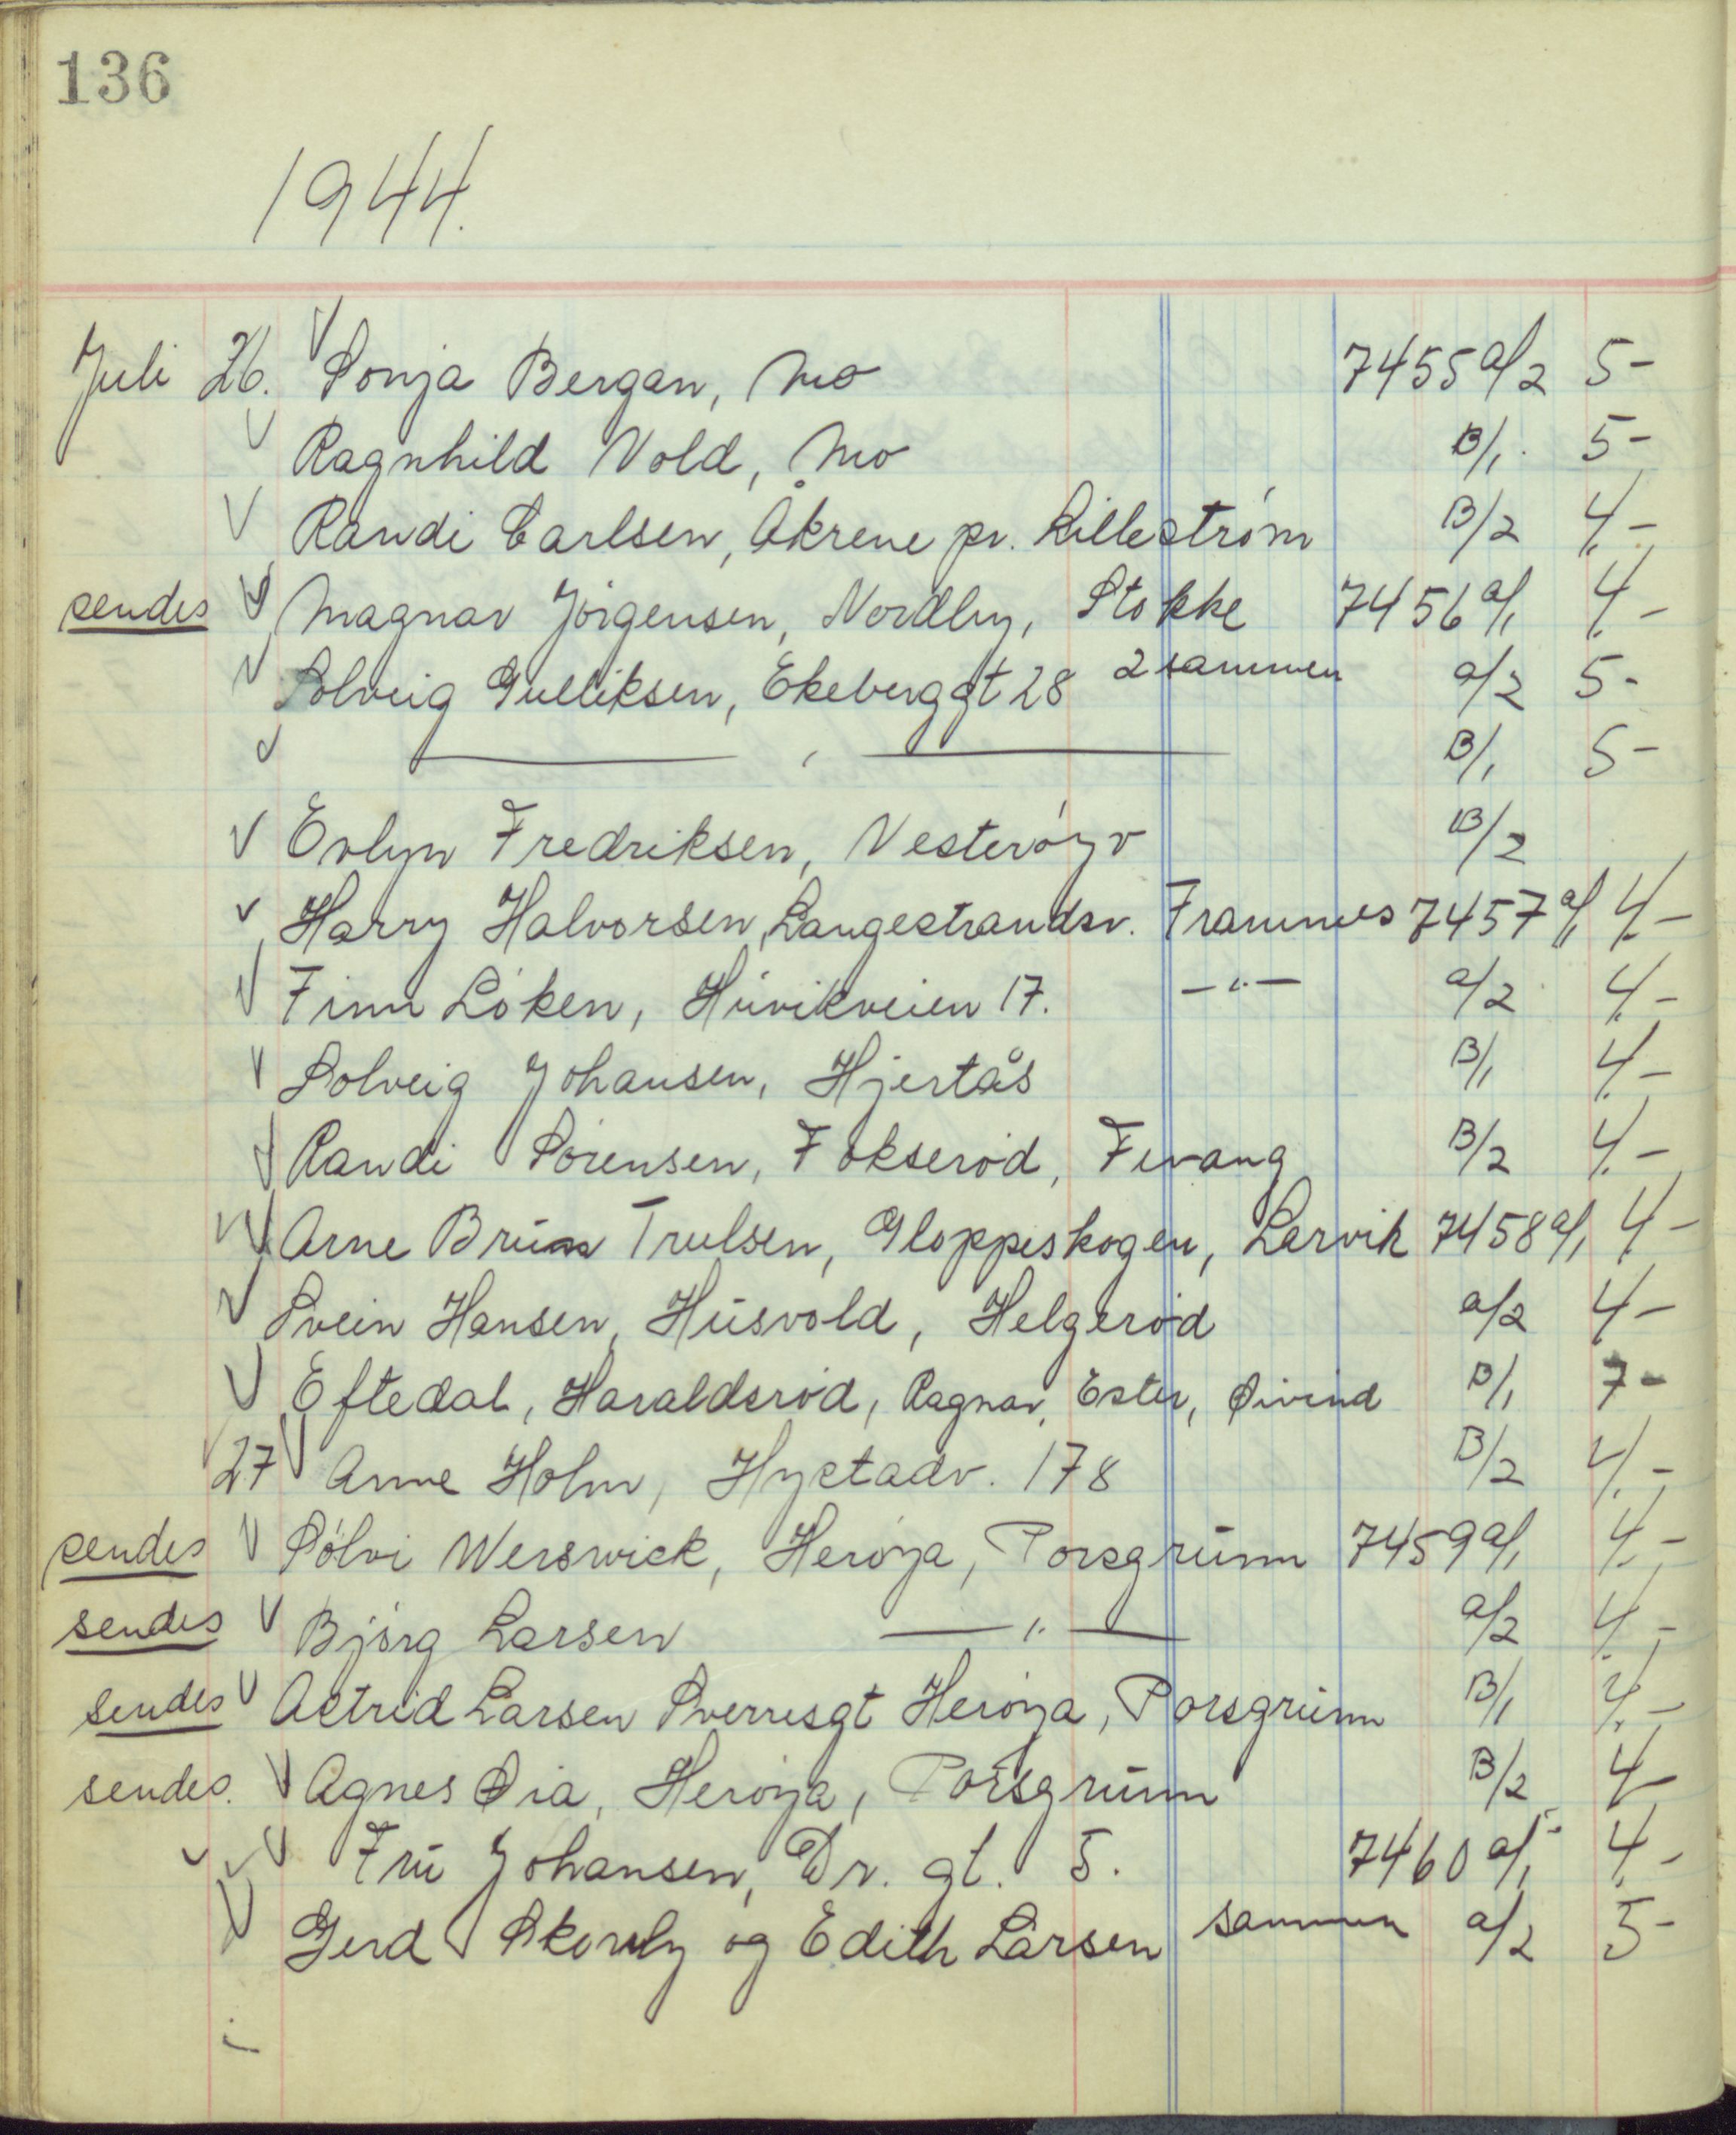 136
1944.
Juli 26. Sonja Bergan, Mo 7455 a/2 5-
Ragnhild Vold, Mo B/1. 5-
Randi Carlsen, Åkrene pr. Lilleström B/2 4,-
sendes Magnar Jörgensen, Nordby, Stokke 7456 a/1 4,-
Solveig Gulliksen, Ekeberggt 28 2 sammen a/2 5-
— " — B/1 5-
Evlyn Fredriksen, Vesteröyv B/2
Harry Halvorsen, Langestrandsv. Framnes 7457 a/1 4,-
Finn Löken, Huvikveien 17. — " — a/2 4,-
Solveig Johansen, Hjertås B/1 4,-
Randi Sörensen, Fokseröd, Fevang B/2 4,-
Arne Bruun Trulsen, Gloppeskogen, Larvik 7458 a/1 4,-
Svein Hansen, Husvold, Helgeröd a/2 4,-
Eftedal, Haraldsröd, Ragnar, Ester, Øivind B/1 7-
27 Anne Holm, Hystadv. 178 B/2 4,-
sendes Sölvi Werswick, Heröya, Porsgrunn 7459 a/1 4,-
sendes Björg Larsen — " — a/2 4,-
sendes Astrid Larsen Sverresgt Heröya, Porsgrunn B/1 4,-
sendes. Agnes Øia, Heröya, Porsgrunn B/2 4,-
Fru Johansen, Dr. gt. 5. 7460 a/1 4,-
Gerd og Edith Larsen sammen a/2 5-